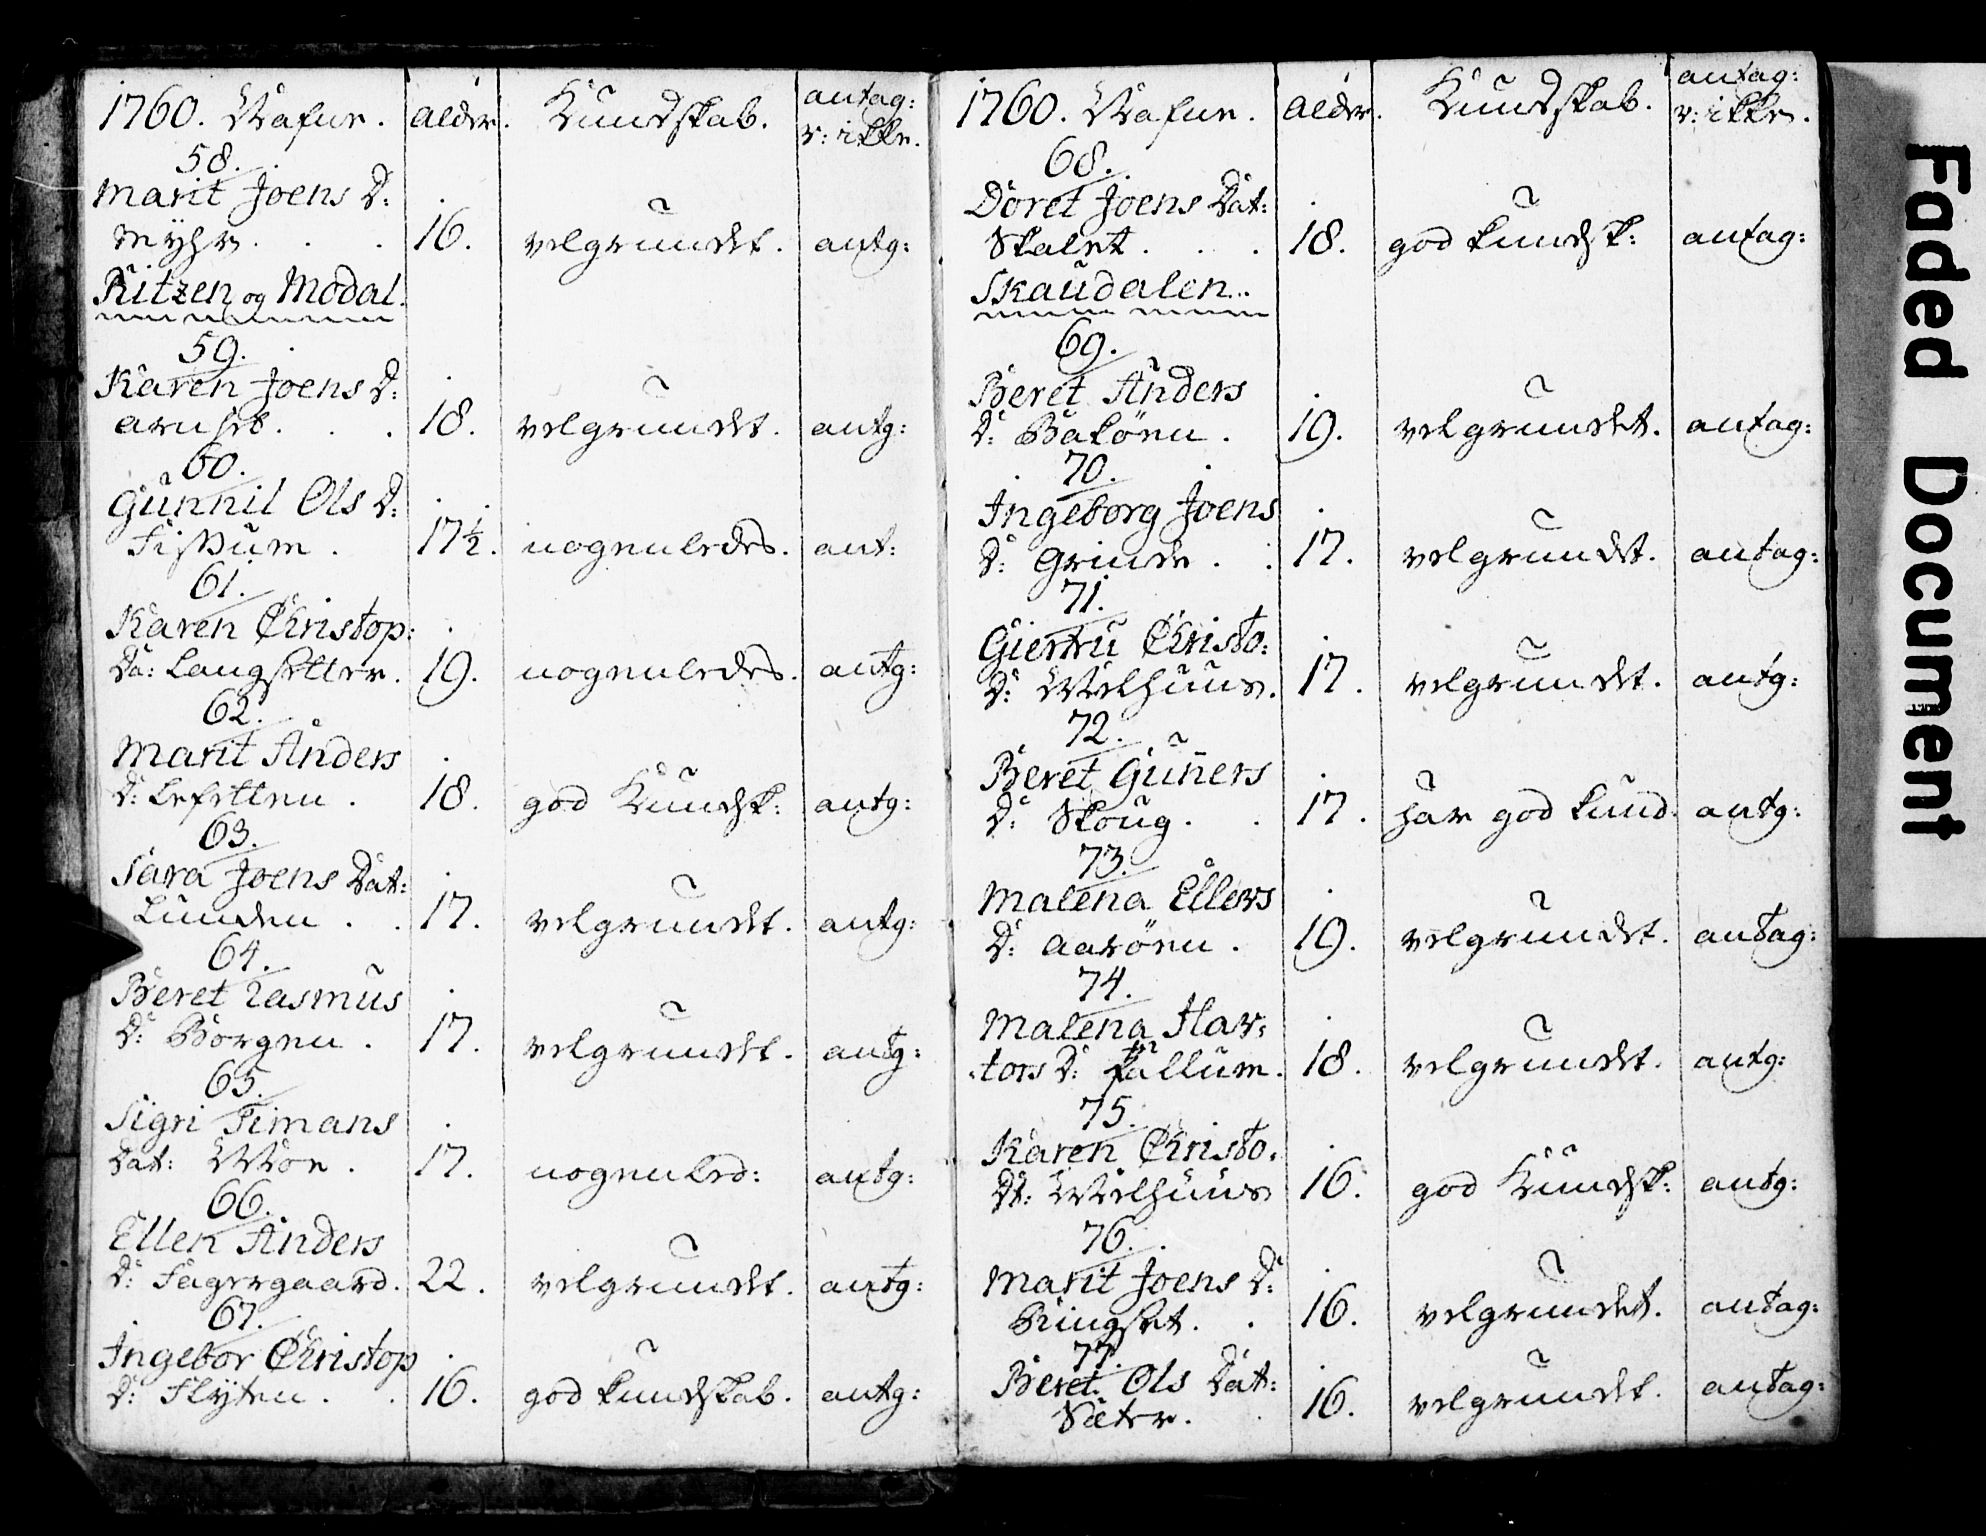 1760. Nafne. alder. Kundskab. antag: e: ikke.
58.
Marit Joens D:
Myhre . . 16. velgrundet. antg:
Ritzen og Modal.
59.
Karen Joens D:
Arnset . . 18. velgrundet. antg:
60.
Gunnil Ols D:
Fissum . 17½. nogenledes. ant:
61.
Karen Christop:
Da: Langsetter. 19. nogenledes. antg:
62.
Marit Anders
D: Lefetten . 18. god Kundsk: antg:
63.
Sara Joens Dat:
Lunden . . 17. velgrundt. antg:
64.
Beret Rasmus
D: Borgen . 17. velgrundet. antg:
65.
Sigri Timans
Dat: Moe . 17. nogenled: antg:
66.
Ellen Anders
D: Fagergaard. 22. velgrundet. antg:
67.
Ingebor Christop
D: Flyten . . 16. god kundskab. antg:
1760. Nafne. alder. Kundskab. antag: e: ikke.
68.
Doret Joens Dat:
Skalet . . 18. god kundsk: antag:
Skaudalen..
69.
Beret Anders
D: Baköen . 19. velgrundet. antag:
70.
Ingeborg Joens
D: Grinde . . 17. velgrundet. antag:
71.
Giertru Christo:
D: Melhuus. 17. velgrundet. antg:
72.
Beret Guners
D: Skoug . . 17. har god kund. antg:
73.
Malena Ellers
D: Aaröen . 19. velgrundet. antag:
74.
Malena Hav:
:tors D: Fallum. 18. velgrundet. antg:
75.
Karen Christo.
Dt: Melhuus 16. god Kundsk: antg:
76.
Marit Joens D:
Ringset . . 16. velgrundet. antag:
77.
Beret Ols Dat:
Sæter. . 16. velgrundet. antag:
Faded Document